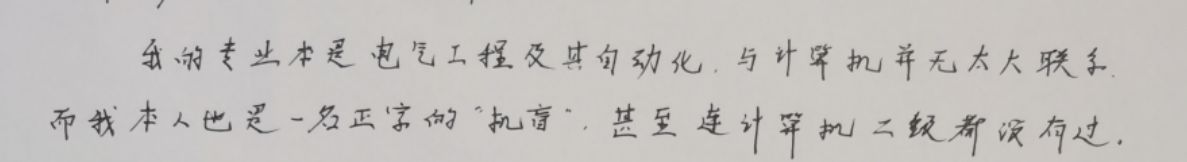 我的专业本是电气工程及其自动化,与计算机并无太大联系,
而我本人也是一名正字的“机盲”,甚至连计算机二级都没有过.